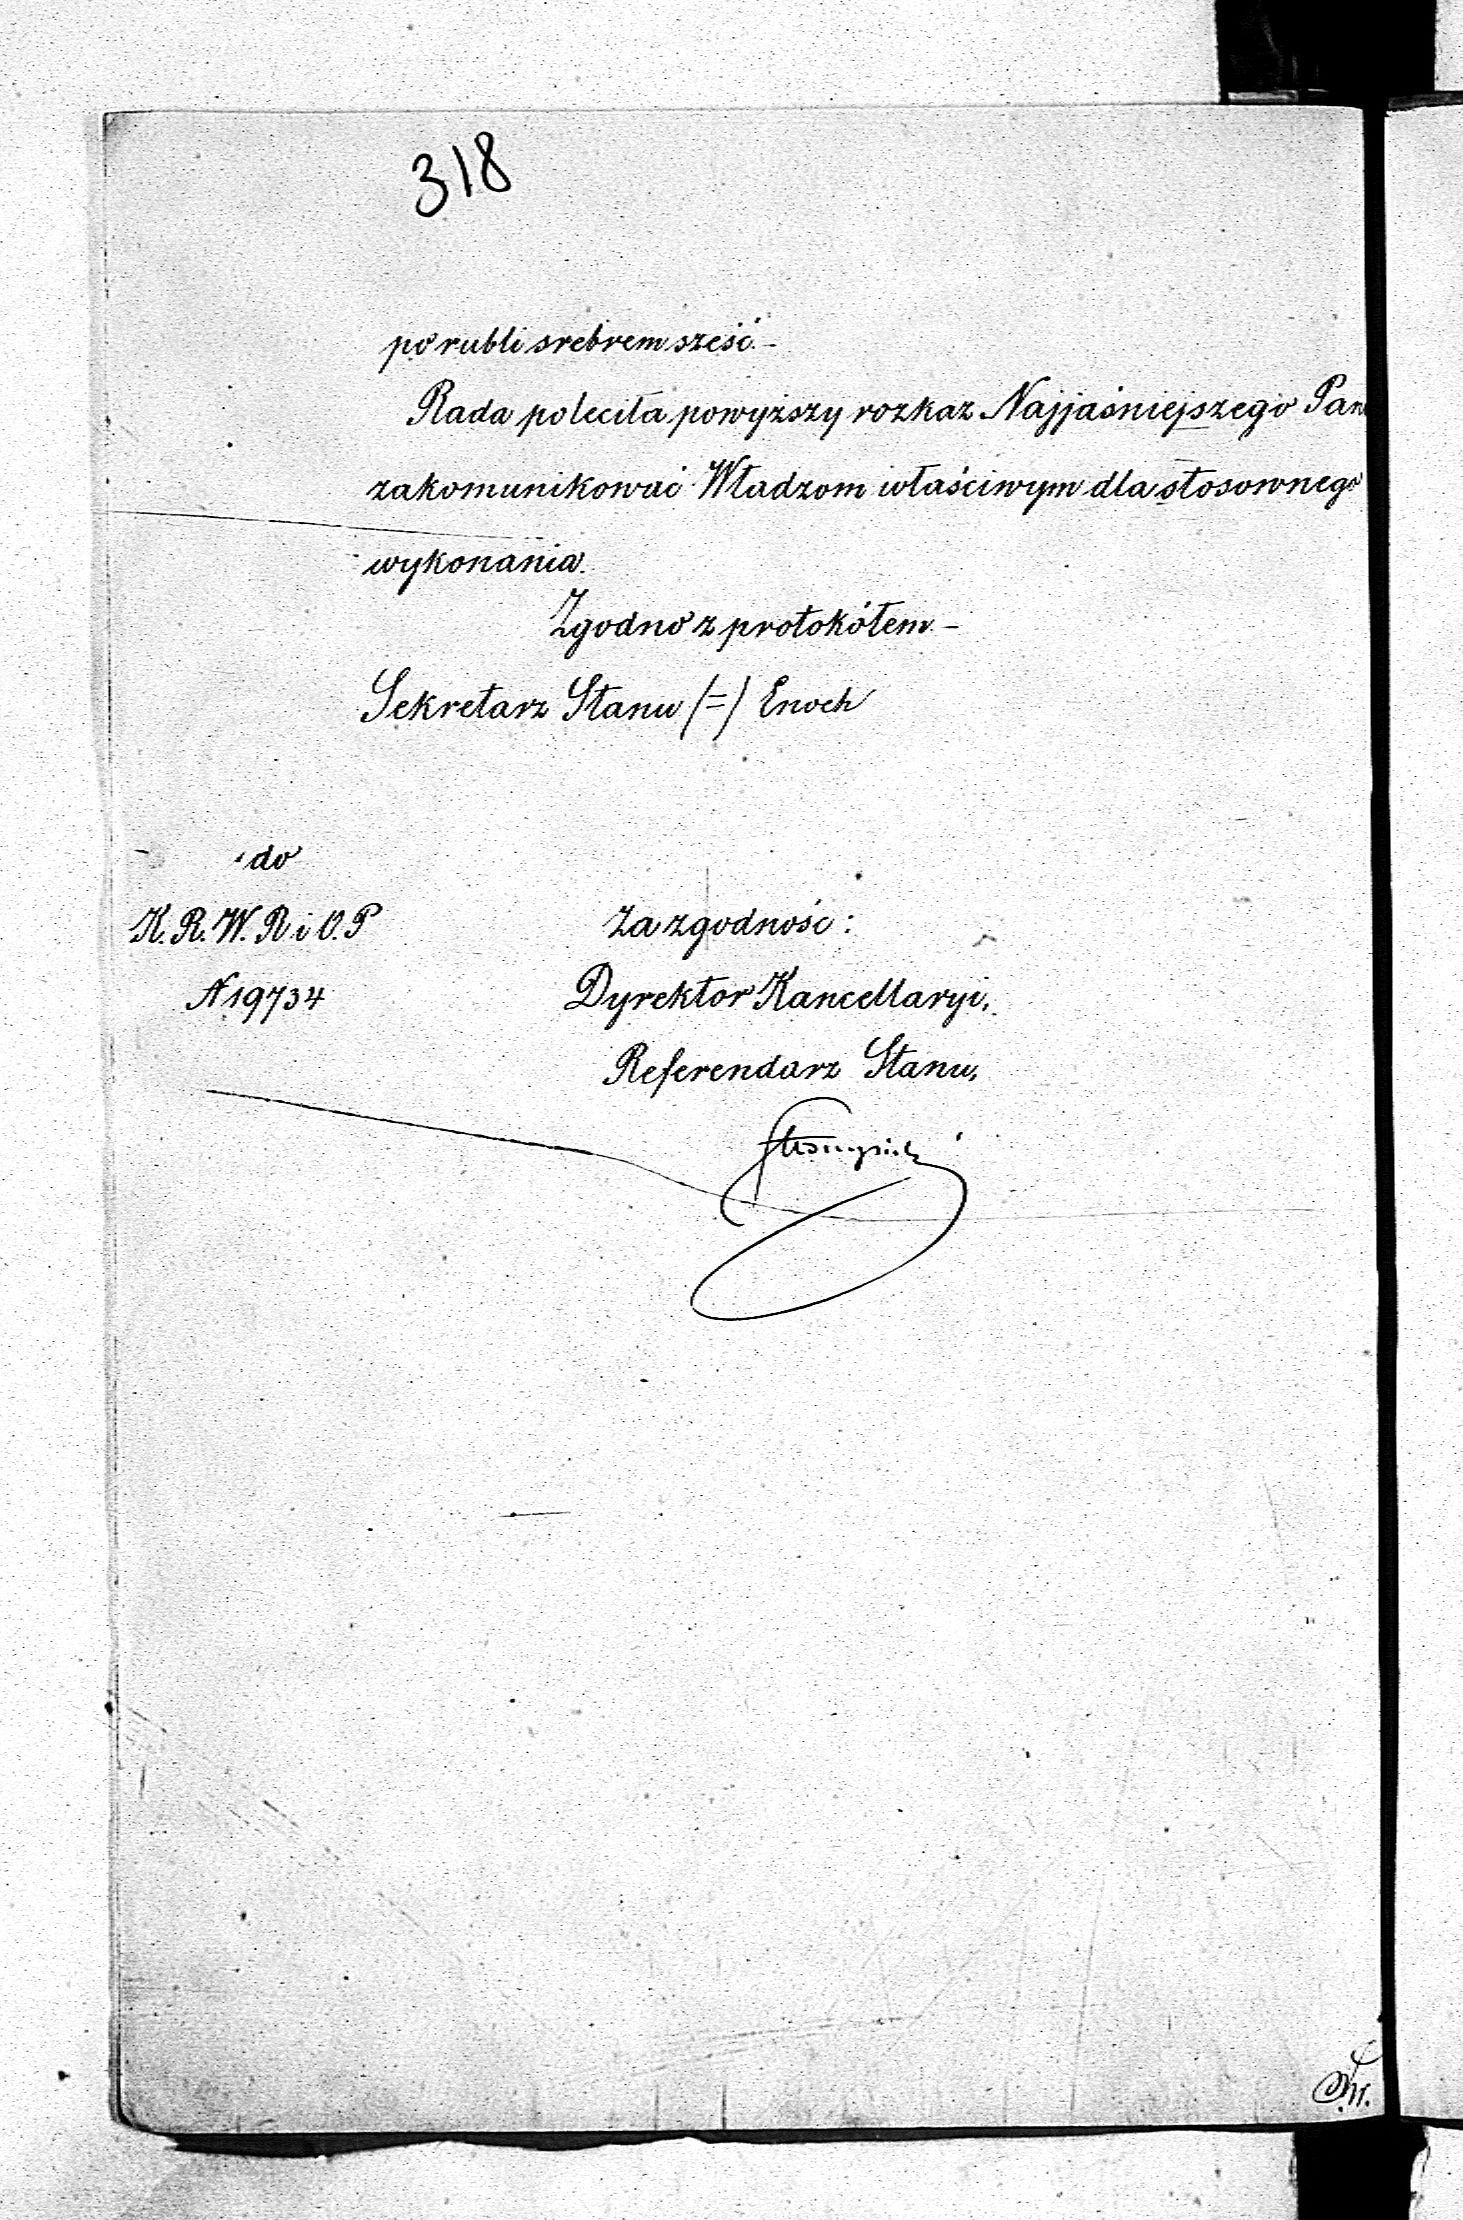 318
po rubli srebrem sześć.-
Rada poleciła powyższy rozkaz Najjaśniejszego Pan
zakomunikować Władzom właściwym dla stosownego
wykonania.
Zgodno z protokółem.-
Sekretarz Stanu /=/ Enoch
do
K. R. W. R i O. P
N 19734
Za zgodność:
Dyrektor Kancellaryi,
Referendarz Stanu,